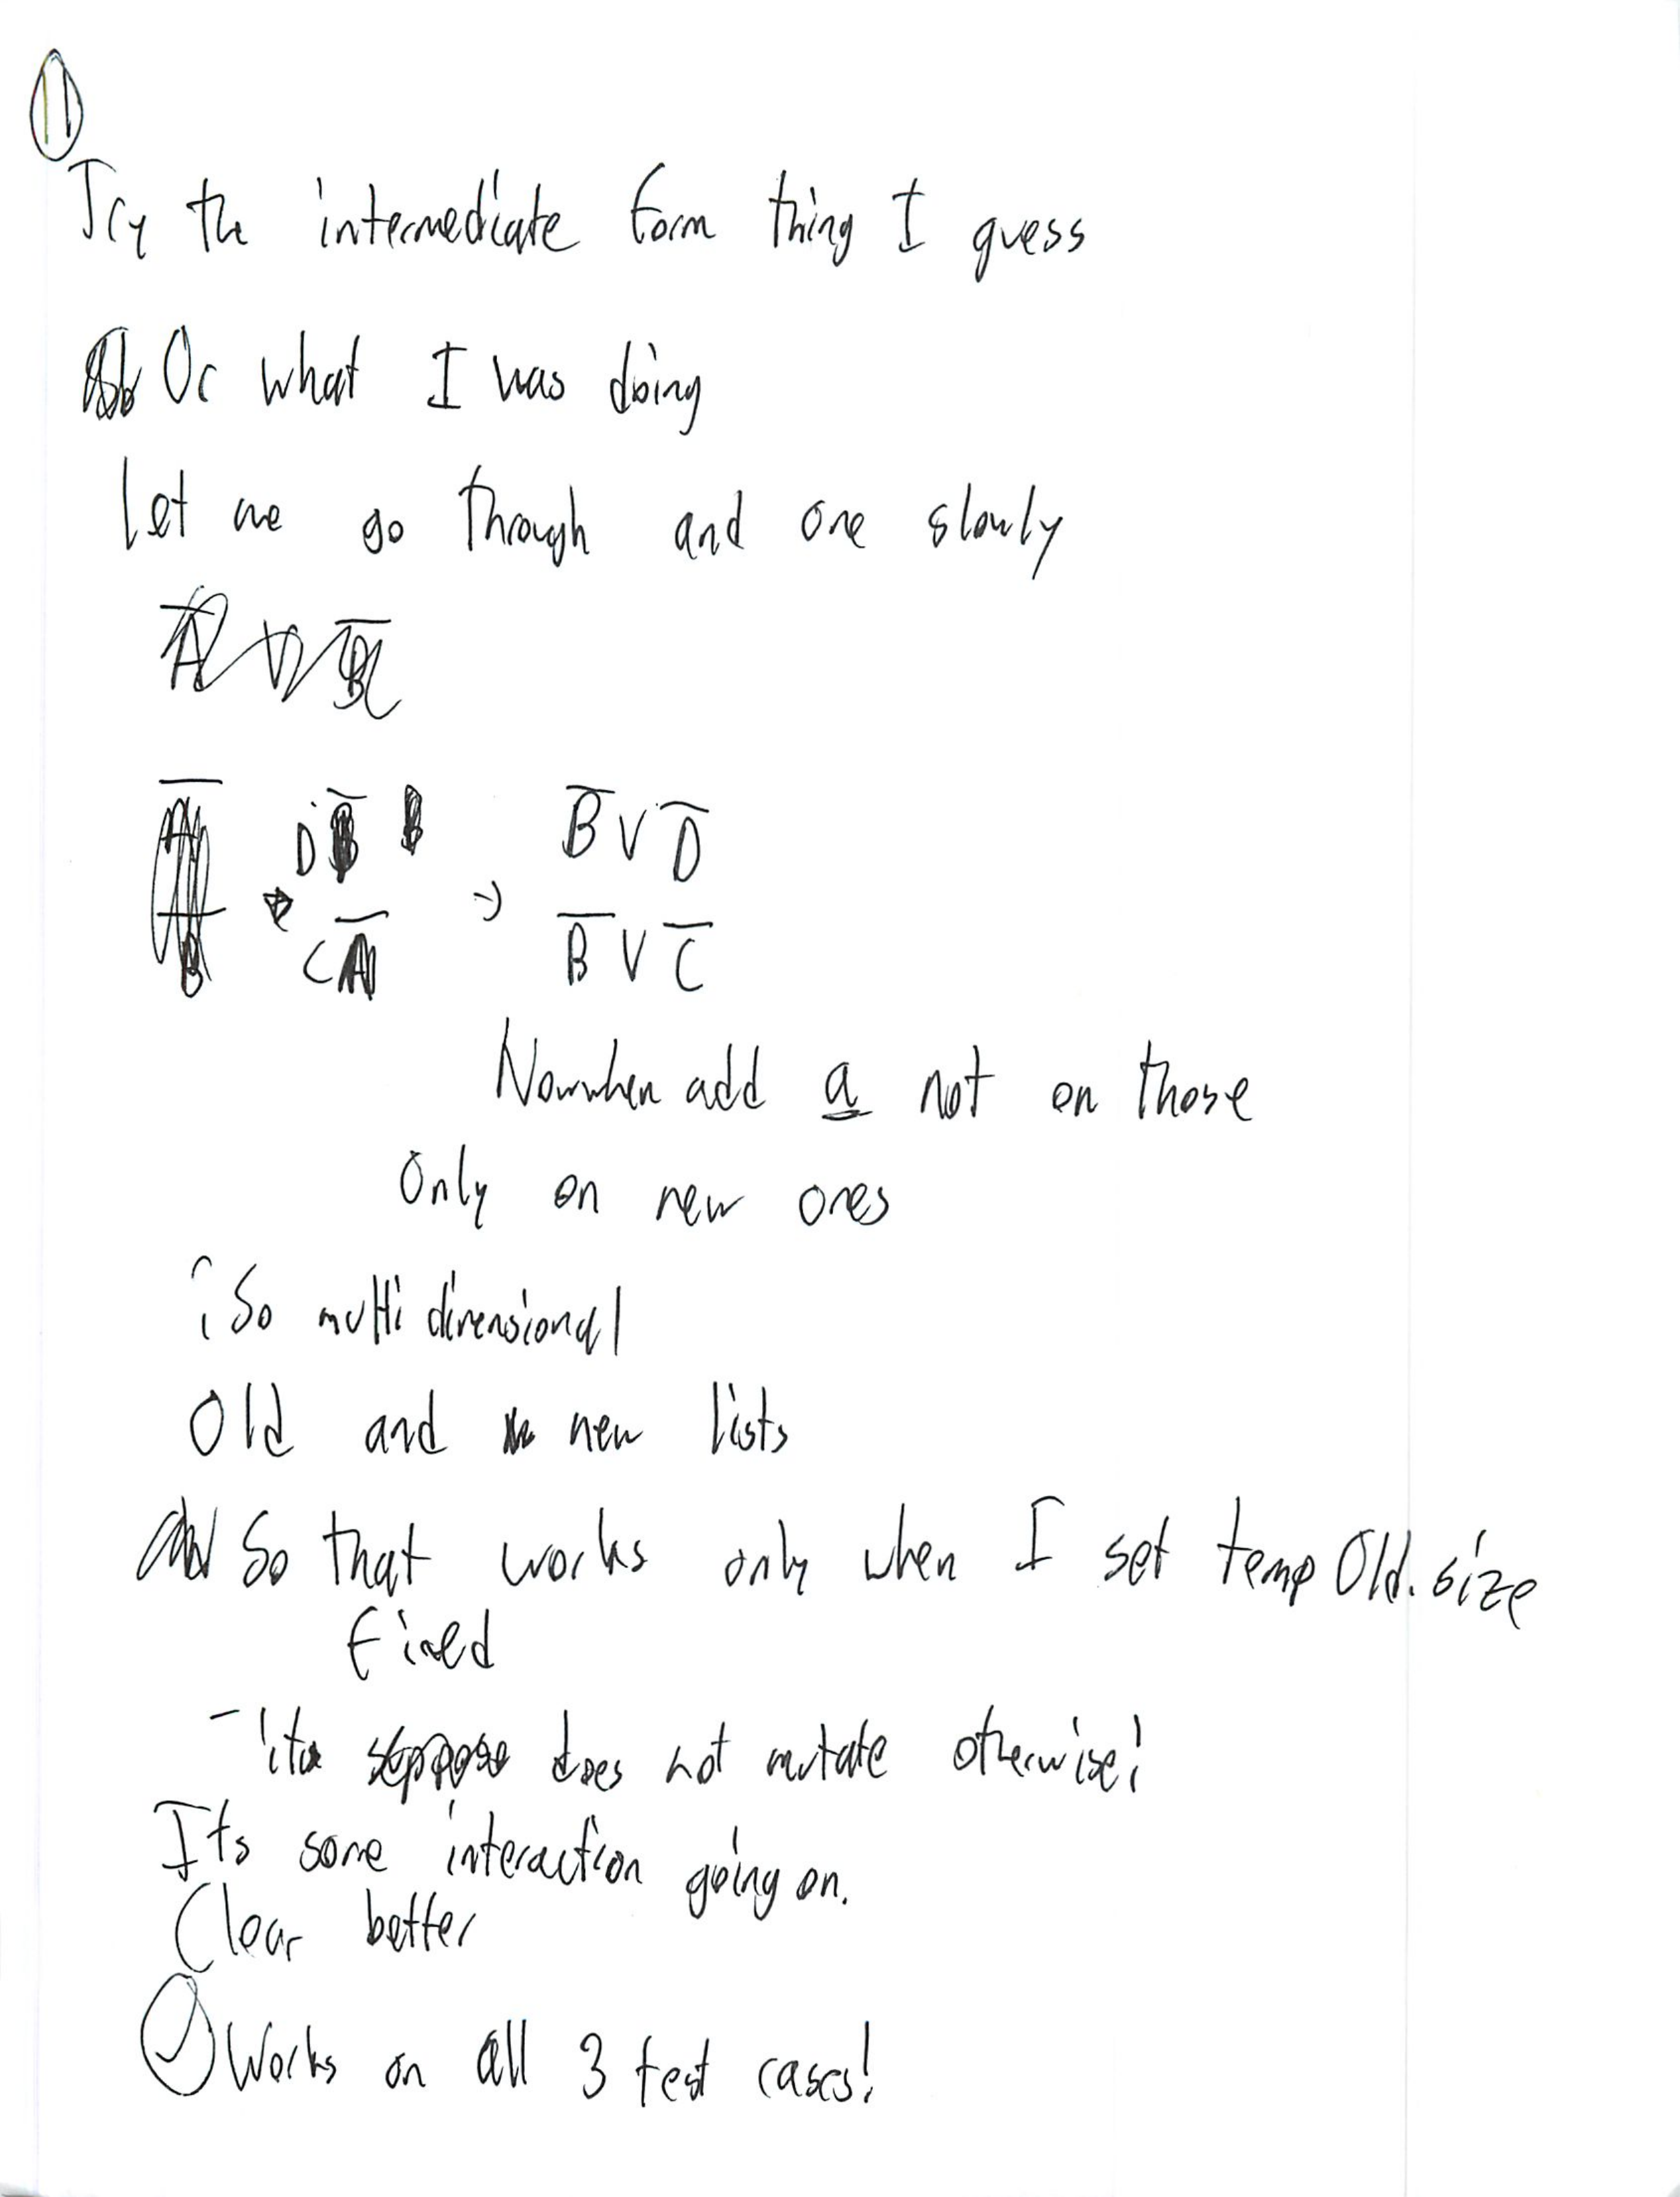 11
Try the intermediate form thing I guess
Or what I was doing
Let me go through and one slowly
A̅ V B̅
D B̅ V D̅
C B̅ V C̅
Now when add a not on those
Only on new ones
So multi dimensional
Old and new lists
So that works only when I set temp Old.size
fixed
- its does not mutate otherwise!
Its some interaction going on.
Clear better
Works on all 3 test cases!